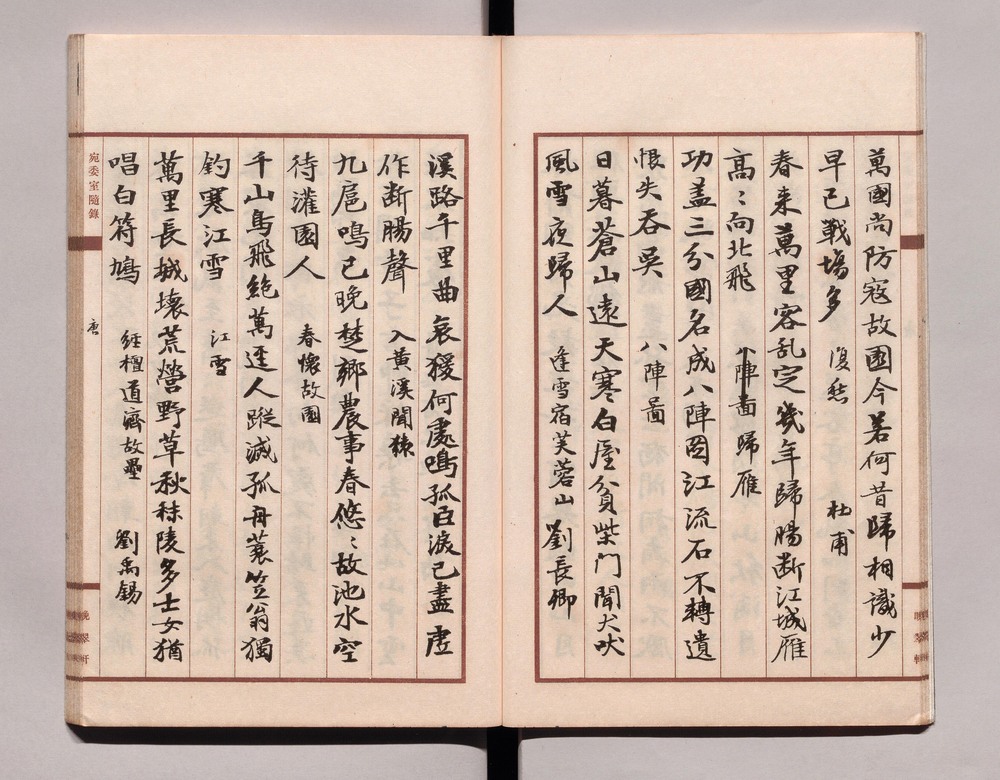 萬國尚防寇故國今若何昔歸相識少
早已戰場多　復愁　杜甫
春来萬里客乱定幾年歸腸断江城雁
高〻向北飛　八陣啚　歸雁
功盖三分國名成八陣圖江流石不轉遺
恨失吞吳　八陣啚
日暮蒼山遠天寒白屋貧柴门聞犬吠
風雪夜歸人　逢雪宿芙蓉山　劉長卿
溪路千里曲哀猨何處鳴孤臣淚已盡虚
作断腸聲　入黄溪聞猿
九扈鳴已晚楚鄉農事春悠〻故池水空
待灌園人　春懷故園
千山鳥飛絶萬逕人蹤滅孤舟蓑笠翁獨
钓寒江雪　江雪
萬里長城壊荒營野草秋秣陵多士女猶
唱白符鳩　經檀道濟故壘　劉禹錫
宛委室隨錄
唐